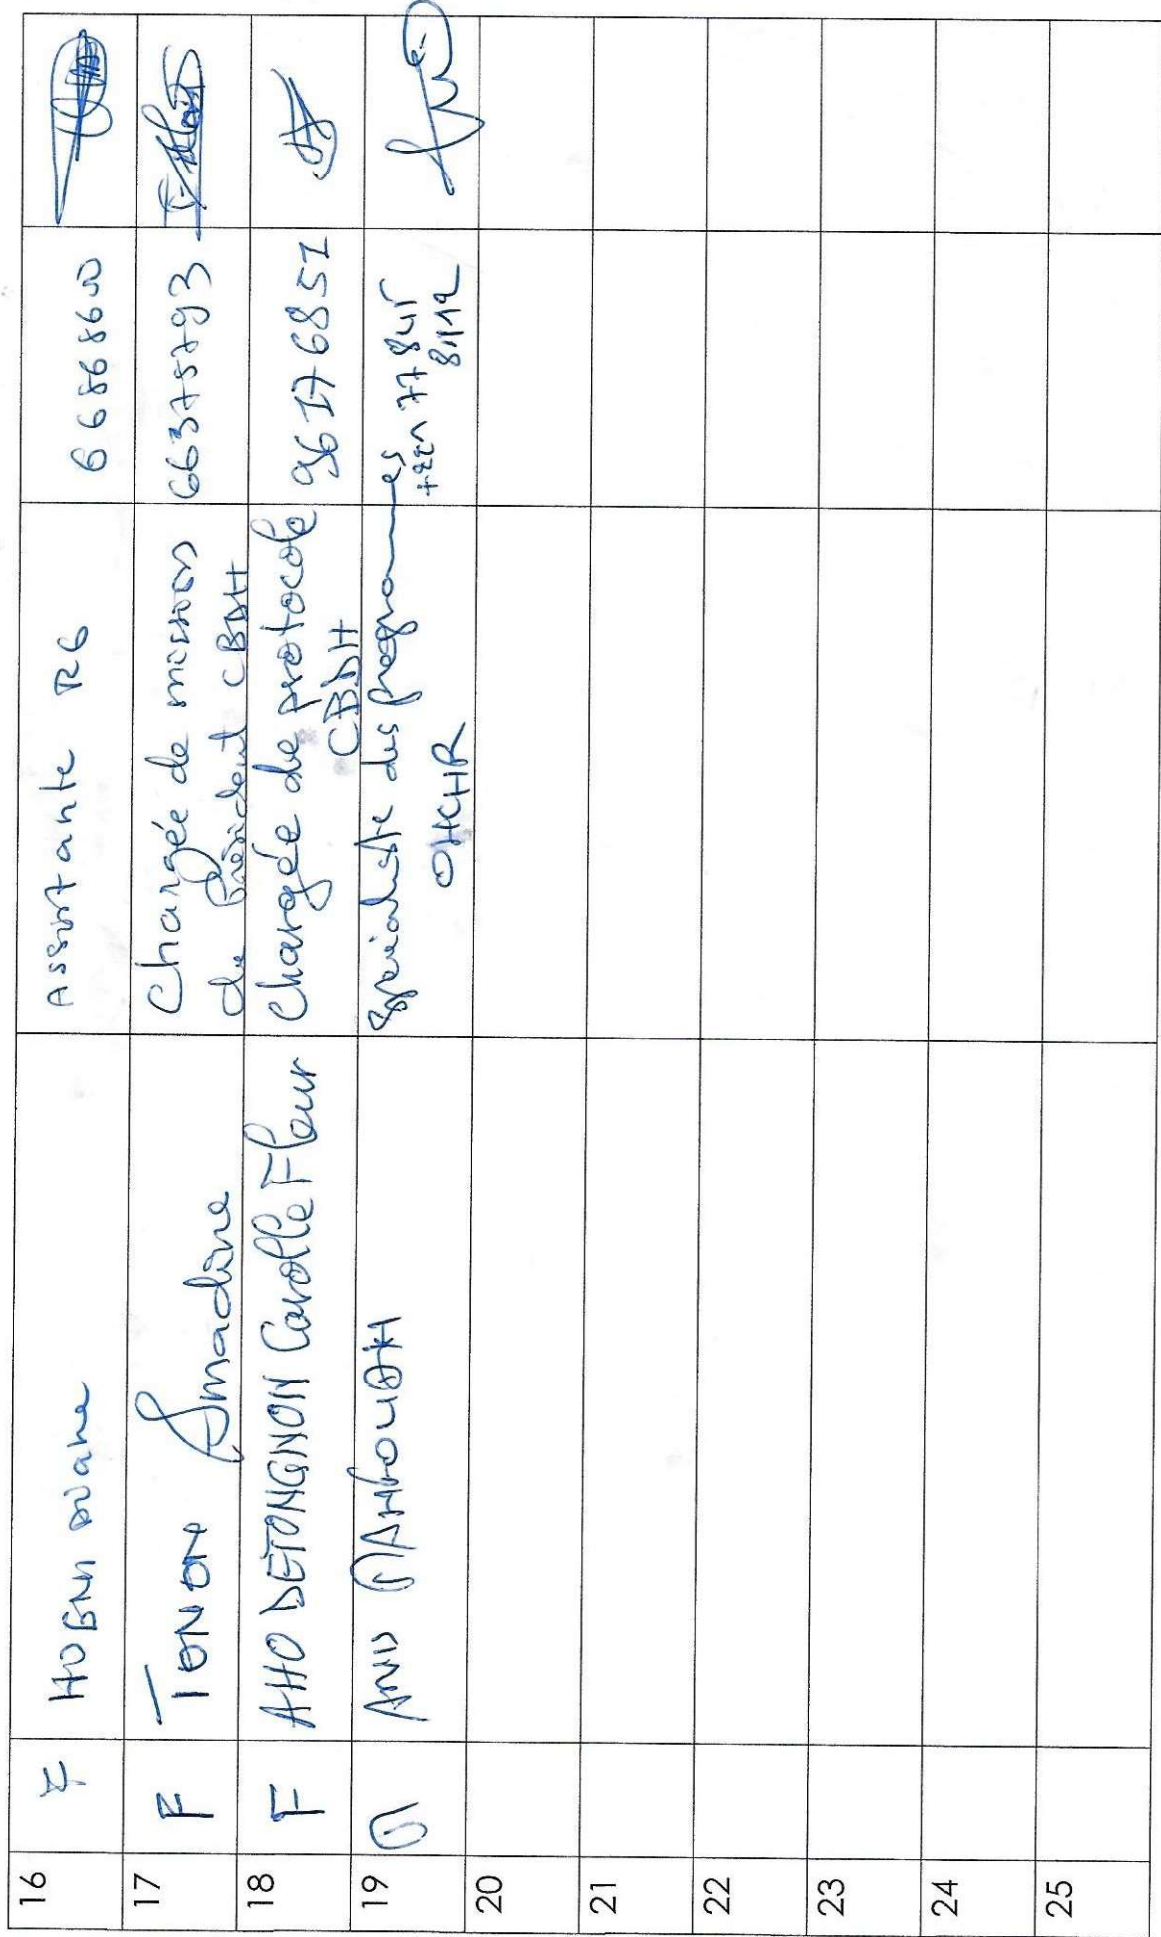 16 F HOGNN Assistante R6 66868600
17 F TONON Amadine Chargée de mission 66375793
du Président CBDH
18 F AHO DETONGNON Carolle Fleur Chargée de protocole 96176851
CBDH
19 M Anis MAHFOUDH Spécialiste des programmes +221 77 845
OHCHR 8112
20
21
22
23
24
25